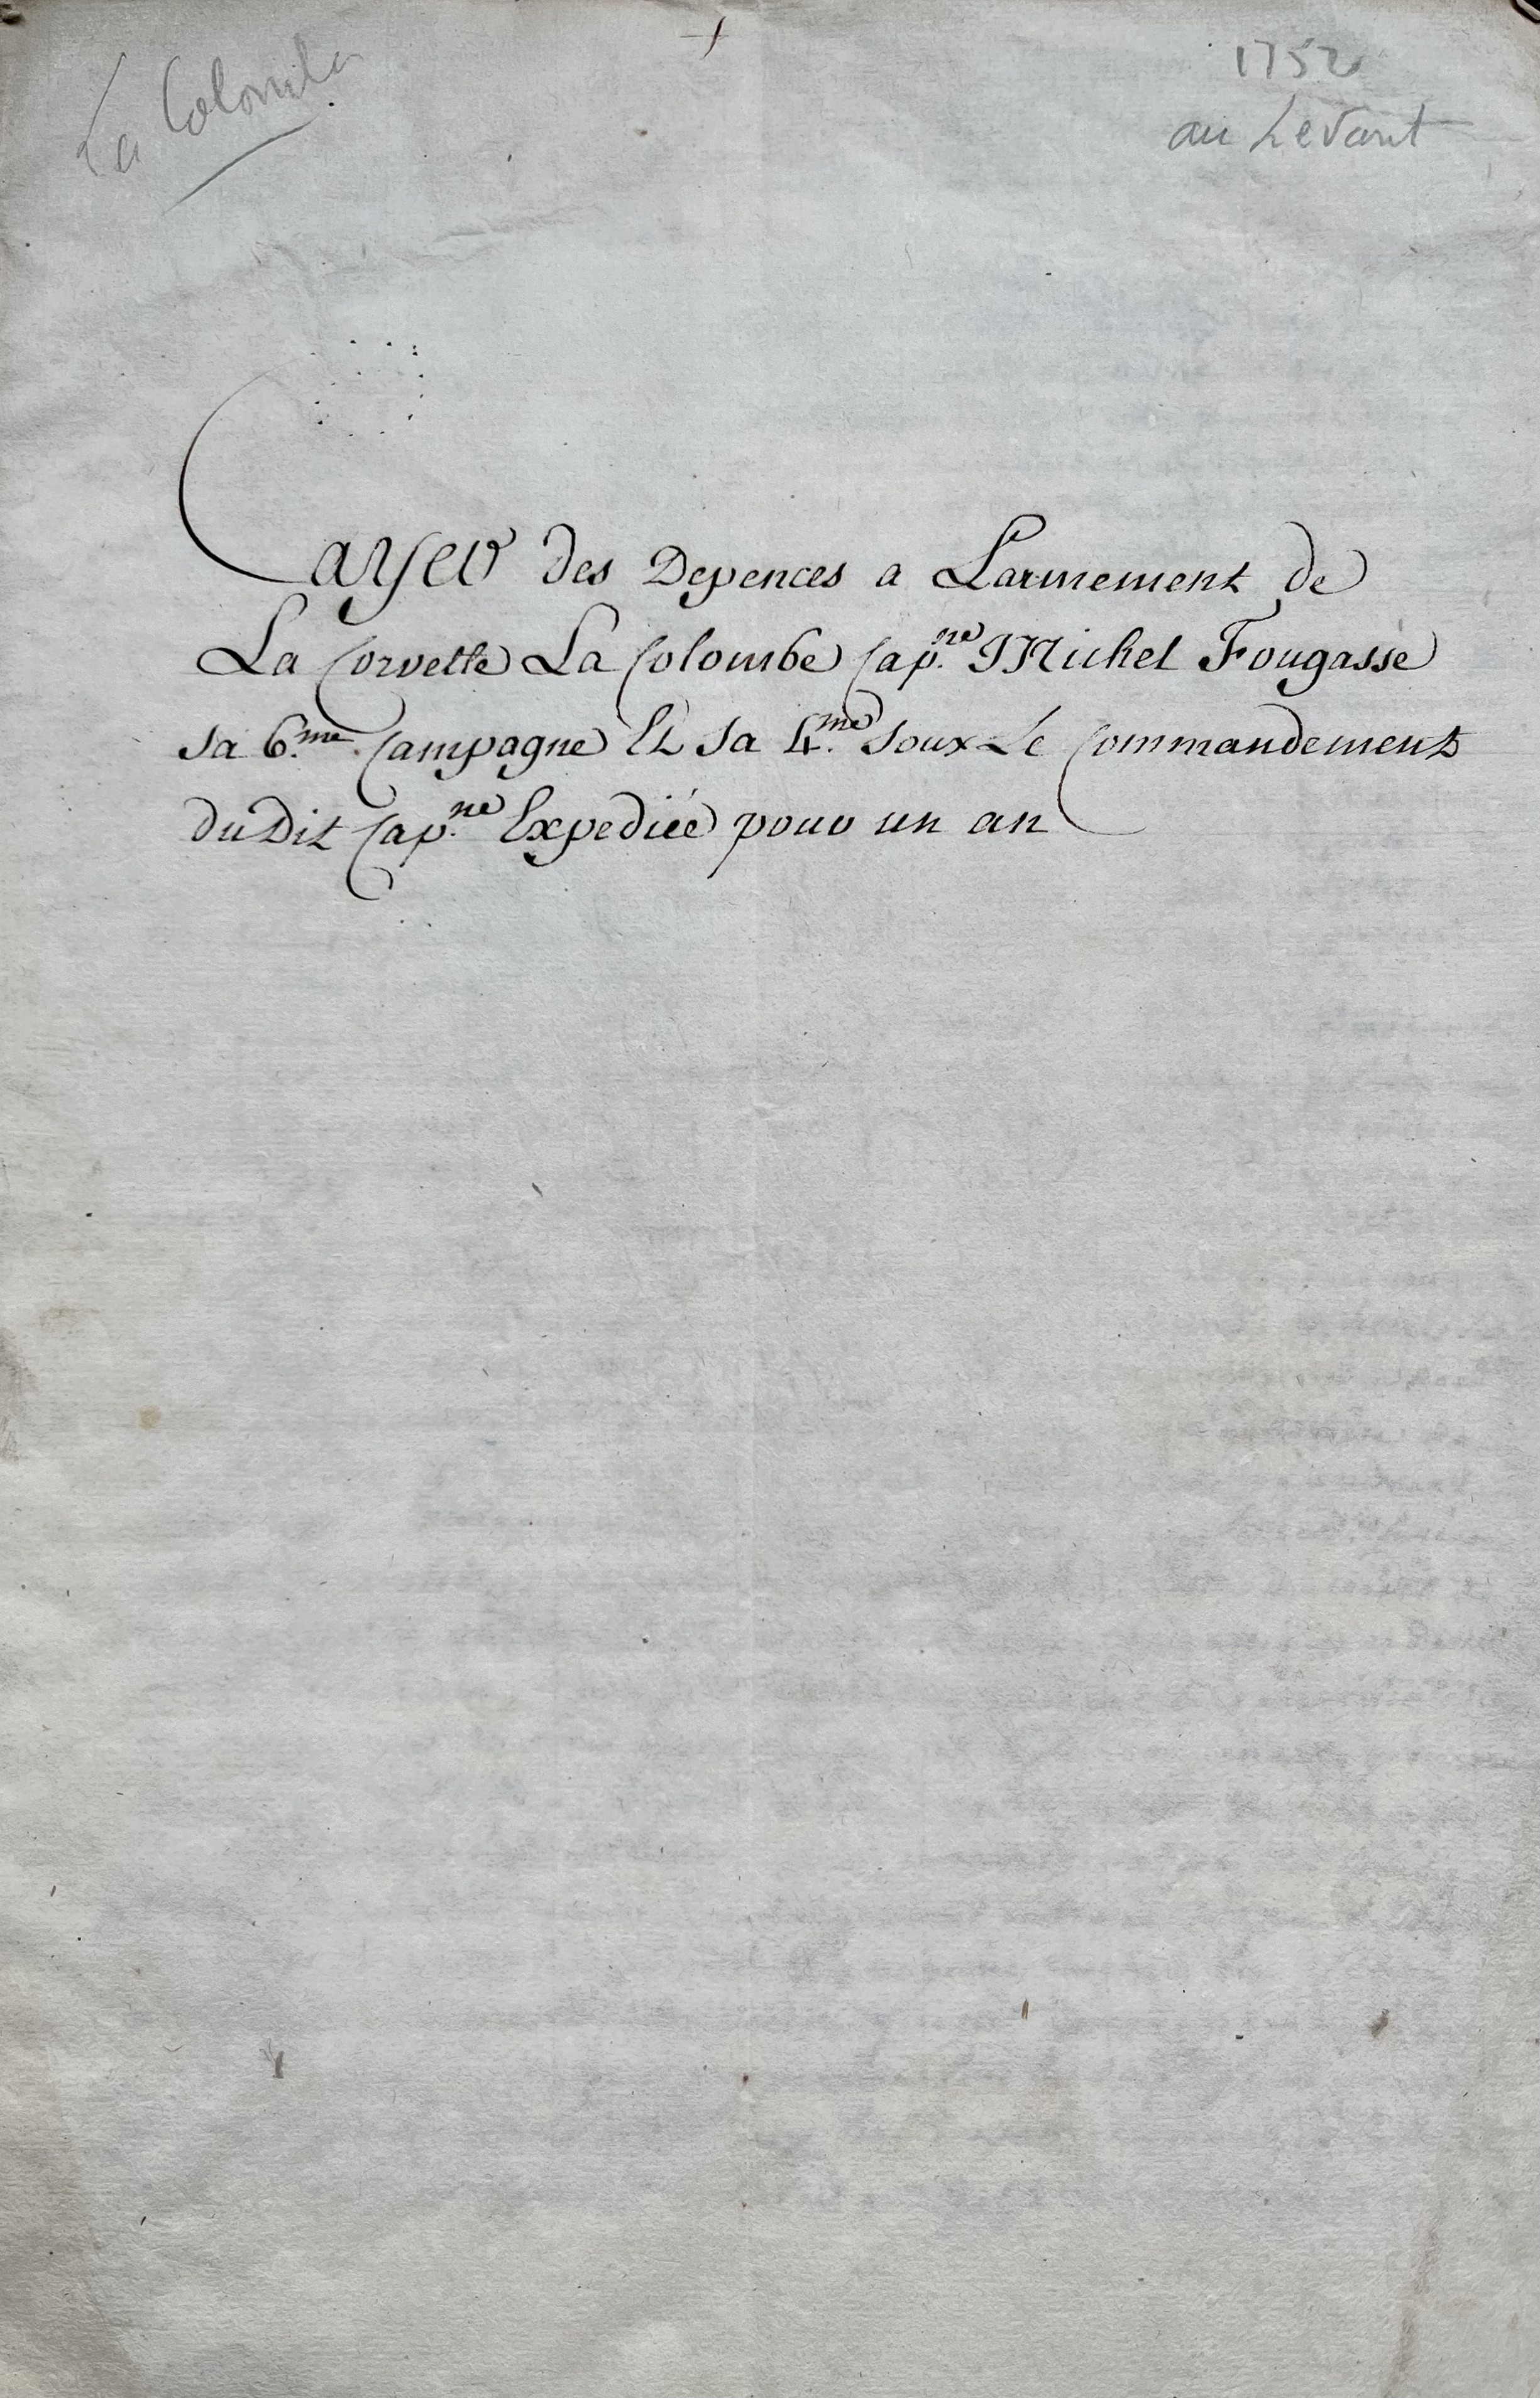 La Colombe
1752
au Levant
Cayer des Depences a Larmement de
La Corvette La Colombe Cap.ne Michel Fougasse
sa 6.me Campagne Et sa 4.me Soux Le Commandement
du Dit Cap.ne Expediée pour un an